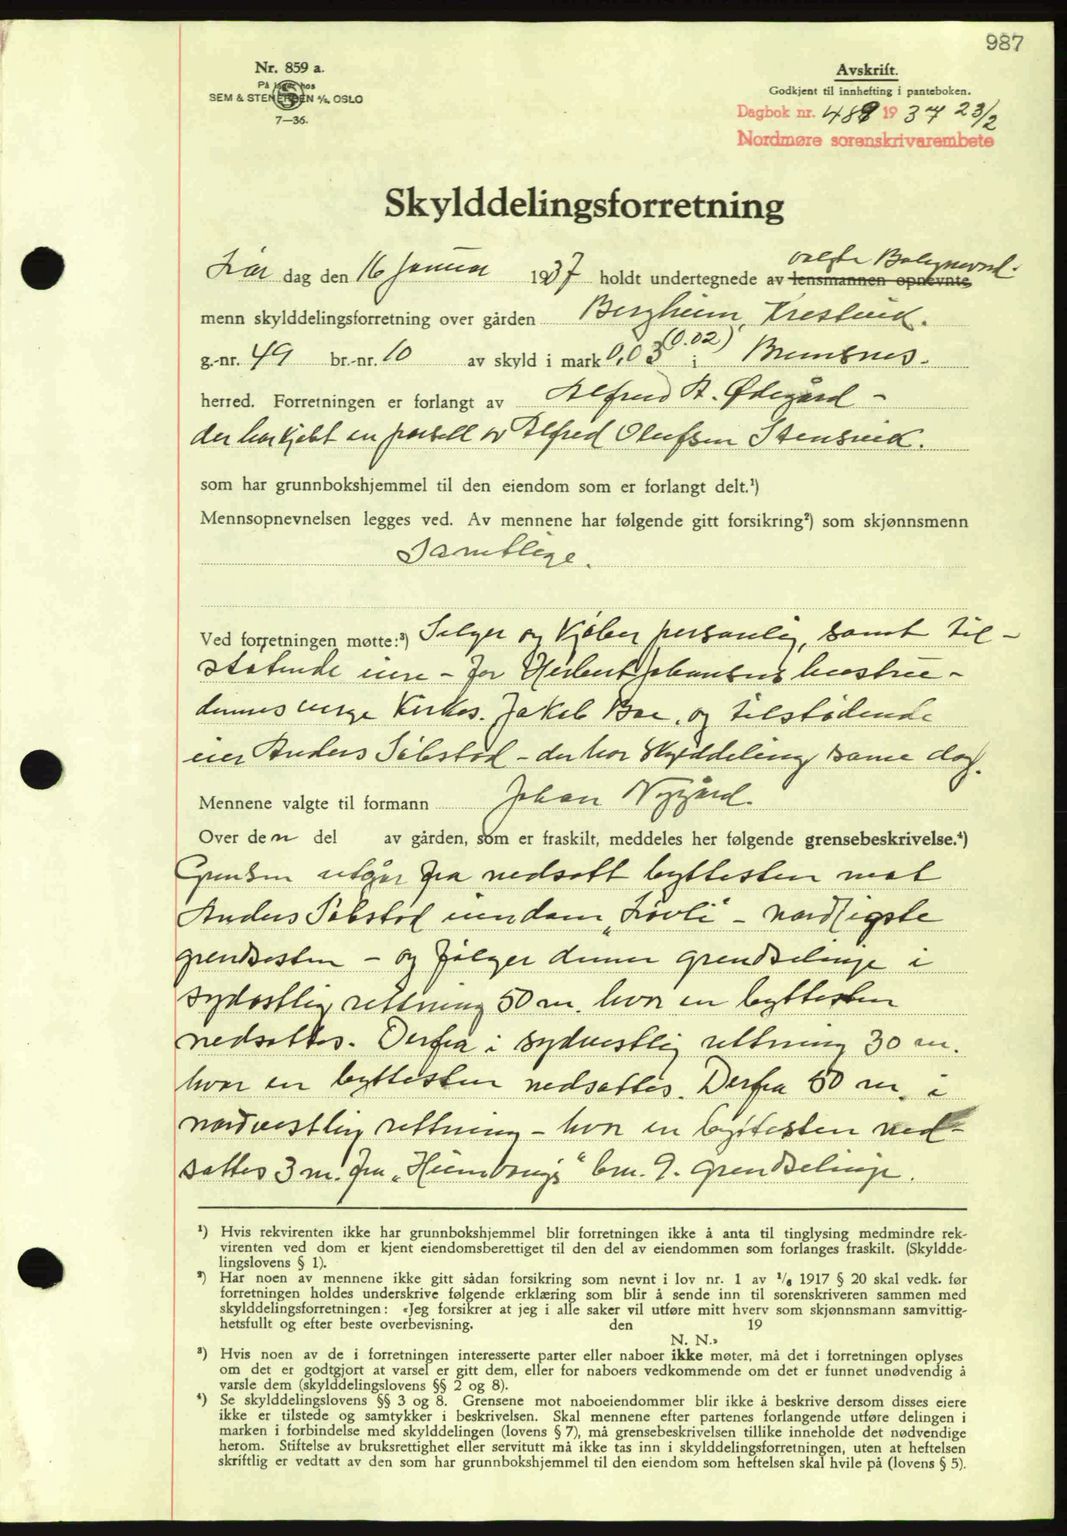 987
Nr. 859 a.
På lager hos
SEM & STENERSEN A/S. OSLO
7—36.
Avskrift.
Godkjent til innhefting i panteboken.
Dagbok nr. 488 1937 23/2
Nordmøre sorenskriverembete
Skylddelingsforretning
Lør dag den 16 Januar 1937 holdt undertegnede av lensmannen opnevnte valgte
menn skylddelingsforretning over gården Bergheim, Krestvik.
g.-nr. 49 br.-nr. 10 av skyld i mark 0,03 (0.02) i Bremsnes.
herred. Forretningen er forlangt av Alfred A. Ødegård -
der har kjøbt en parsell av Alfred Olufsen Stensvik.
som har grunnbokshjemmel til den eiendom som er forlangt delt.¹)
Mennsopnevnelsen legges ved. Av mennene har følgende gitt forsikring²) som skjønnsmenn
Samtlige.
Ved forretningen møtte:³) Selger og Kjøber personlig, samt til-
støtende eiere - for Herbert Johansens hustru -
dennes verge Kirkes. Jakob Boe, og tilstødende
eier Anders Sølstad - der har Skylddeling same dag.
Mennene valgte til formann Johan Nygård.
Over den del av gården, som er fraskilt, meddeles her følgende grensebeskrivelse.⁴)
Grensen utgår fra nedsatt byttesten mot
Anders Sølstad eiendom „Løvli" - nordligste
grendsesten - og følger denne grendselinje i
sydøstlig rettning 50 m. hvor en byttesten
nedsattes. Derfra i sydvestlig rettning 30 m.
hvor en byttesten nedsattes. Derfra 50 m. i
nordvestlig rettning - hvor en byttesten ned-
sattes 3 m. fra „Heimvangs" brn. 9. grendselinje.
¹) Hvis rekvirenten ikke har grunnbokshjemmel blir forretningen ikke å anta til tinglysing medmindre rek-
virenten ved dom er kjent eiendomsberettiget til den del av eiendommen som forlanges fraskilt. (Skyldde-
lingslovens § 1).
²) Har noen av mennene ikke gitt sådan forsikring som nevnt i lov nr. 1 av 1/6 1917 § 20 skal vedk. før
forretningen holdes underskrive følgende erklæring som blir å sende inn til sorenskriveren sammen med
skylddelingsforretningen: «Jeg forsikrer at jeg i alle saker vil utføre mitt hverv som skjønnsmann samvittig-
hetsfullt og efter beste overbevisning. den 19
N. N.»
³) Hvis noen av de i forretningen interesserte parter eller naboer ikke møter, må det i forretningen oplyses
om det er godtgjort at varsel er gitt dem, eller for naboers vedkommende om det er funnet unødvendig å
varsle dem (skylddelingslovens §§ 2 og 8).
⁴) Se skylddelingslovens §§ 3 og 8. Grensene mot naboeiendommer blir ikke å beskrive dersom disses eiere
ikke er tilstede og samtykker i beskrivelsen. Skal mennene efter partenes forlangende utføre delingen i
marken i forbindelse med skylddelingen (lovens § 7), må grensebeskrivelsen tillike inneholde det nødvendige
herom. Stiftelse av bruksrettighet eller servitutt må ikke tas inn i skylddelingsforretningen, uten at heftelsen
skriftlig er vedtatt av den som har grunnbokshjemmel til den eiendom som heftelsen skal hvile på (lovens § 5).